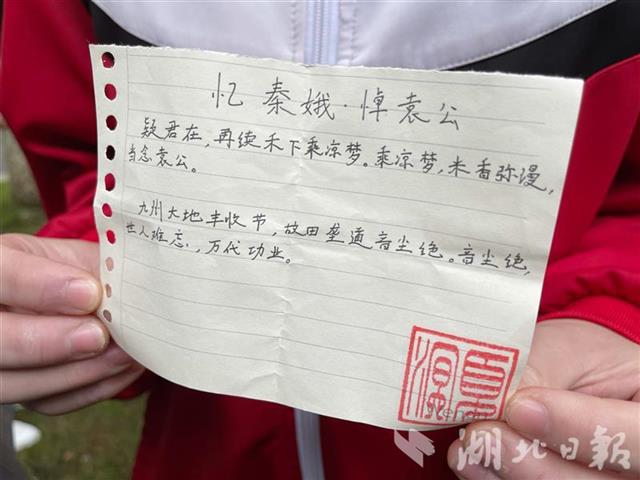 忆秦娥·悼袁公
疑君在,再续禾下乘凉梦。乘凉梦,米香弥漫,
当念袁公。
九州大地丰收节,故田垄道音尘绝。音尘绝,
世人难忘,万代功业。
湖北日报